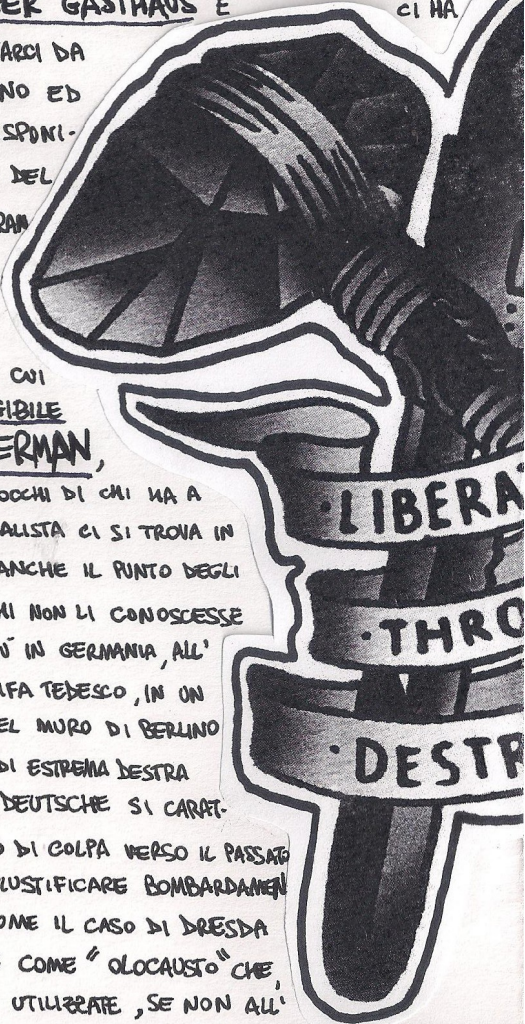 ER GASTHAUS E CI HA
ARCI DA
NO ED
SPONI-
DEL
RAM
CUI
GIBILE
ERMAN,
OCCHI DI CHI HA A
ALISTA CI SI TROVA IN
ANCHE IL PUNTO DEGLI
HI NON LI CONOSCESSE
IN GERMANIA, ALL'
IFA TEDESCO, IN UN
EL MURO DI BERLINO
DI ESTREMA DESTRA
DEUTSCHE SI CARAT-
O DI COLPA VERSO IL PASSATO
IUSTIFICARE BOMBARDAMEN
OME IL CASO DI DRESDA
COME "OLOCAUSTO" CHE,
UTILIZZATE, SE NON ALL'
·LIBERA
·THRO
·DESTR